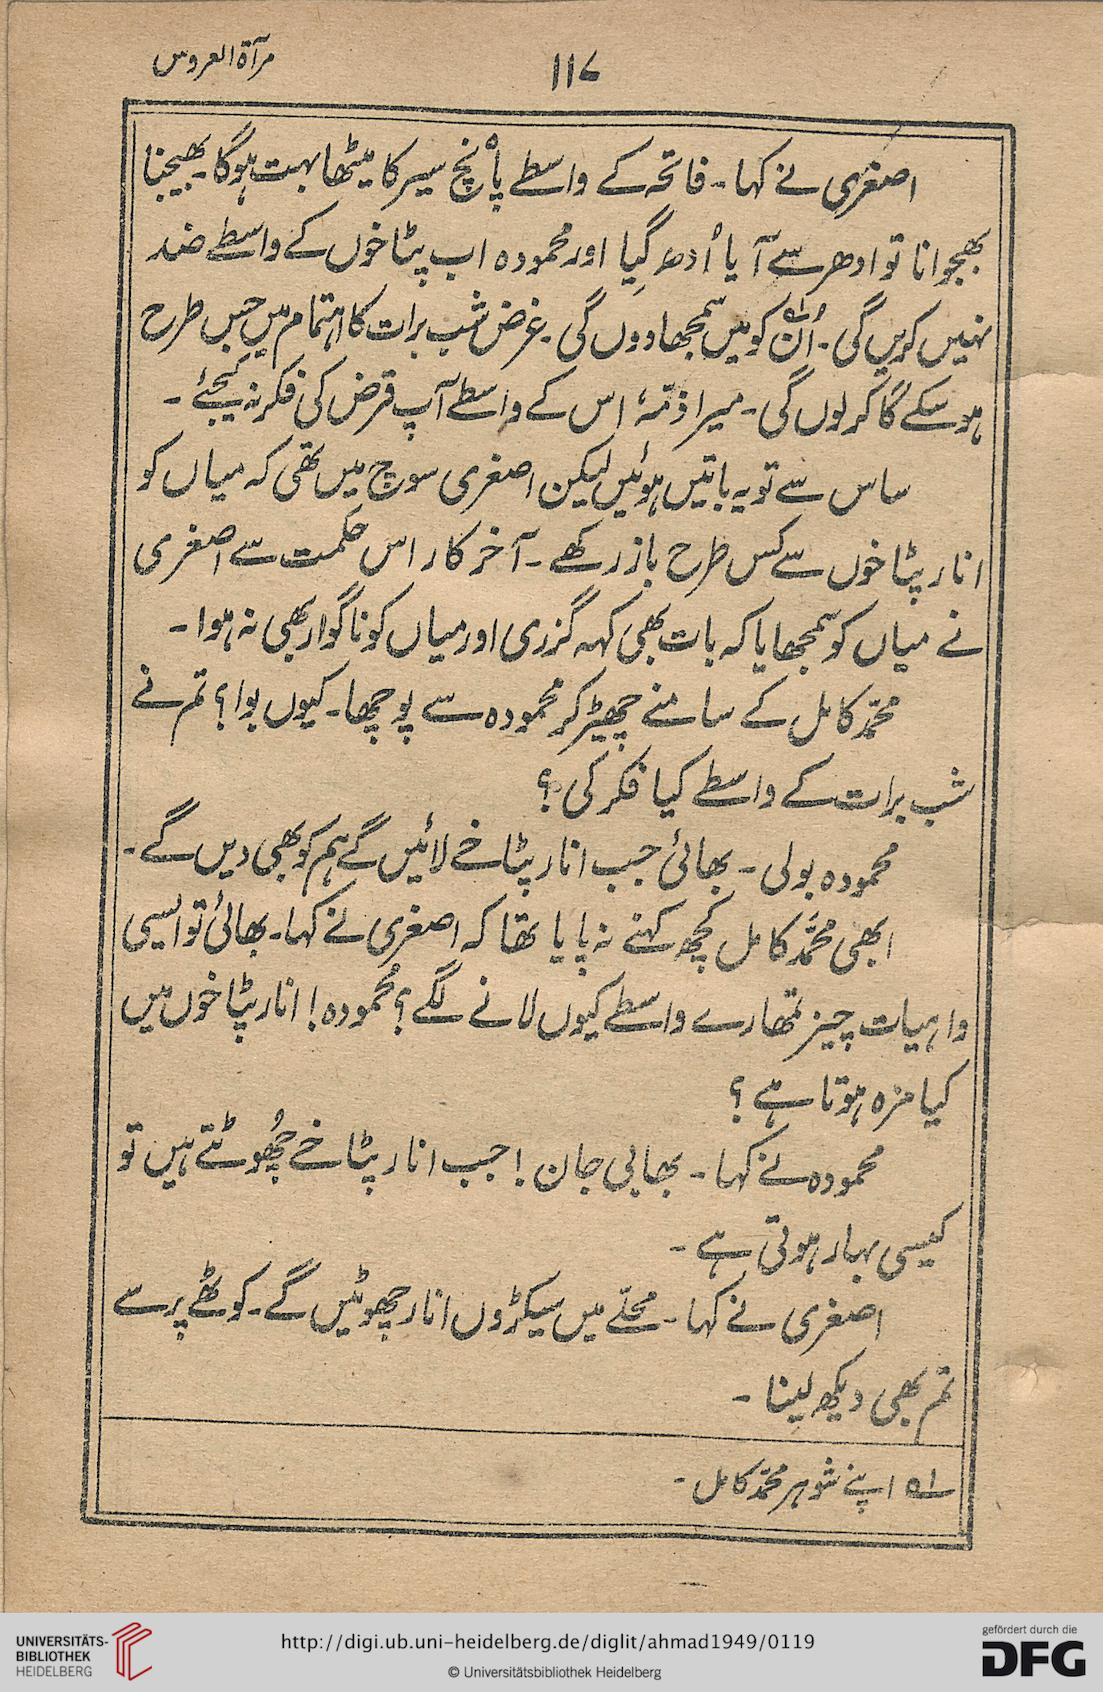 مرآۃ العروس
۱۱۷
اصغری نے کہا۔ فاتحہ کے واسطے پانچ سیر کا میٹھا بہت ہوگا۔ بھیجنا
بھجوانا تو ادھر سے آیا اُدھر گیا اور محمودہ اب پٹاخوں کے واسطے ضد
نہیں کریں گی۔ اُن؁۱ کو میں سمجھا دوں گی۔ غرض شب برات کا اہتمام میں جس طرح
ہو سکے گا کر لوں گی۔ میرا ذمّہ، اس کے واسطے آپ قرض کی فکر نہ کیجئے۔
ساس سے تو یہ باتیں ہوئیں لیکن اصغری سوچ میں تھی کہ میاں کو
انار پٹاخوں سے کس طرح باز رکھے۔ آخر کار اس حکمت سے اصغری
نے میاں کو سمجھایا کہ بات بھی کہہ گزری اور میاں کو ناگوار بھی نہ ہوا۔
محمّد کامل کے سامنے چھیڑ کر محمودہ سے پوچھا۔ کیوں بوا؟ تم نے
شب برات کے واسطے کیا فکر کی؟
محمودہ بولی۔ بھائی جب انار پٹاخے لائیں گے ہم کو بھی دیں گے۔
ابھی محمّد کامل کچھ کہنے نہ پایا تھا کہ اصغری نے کہا۔ بھائی تو ایسی
واہیات چیز تمھارے واسطے کیوں لانے لگے؟ محمودہ! انار پٹاخوں میں
کیا مزہ ہوتا ہے؟
محمودہ نے کہا۔ بھابی جان! جب انار پٹاخے چُھوٹتے ہیں تو
کیسی بہار ہوتی ہے۔
اصغری نے کہا۔ محلّے میں سیکڑوں انار چھوٹیں گے۔ کوٹھے پر سے
تم بھی دیکھ لینا۔
؁۱ اپنے شوہر محمّد کامل۔
UNIVERSITÄTS-
BIBLIOTHEK
HEIDELBERG
http://digi.ub.uni-heidelberg.de/diglit/ahmad1949/0119
© Universitätsbibliothek Heidelberg
gefördert durch die
DFG